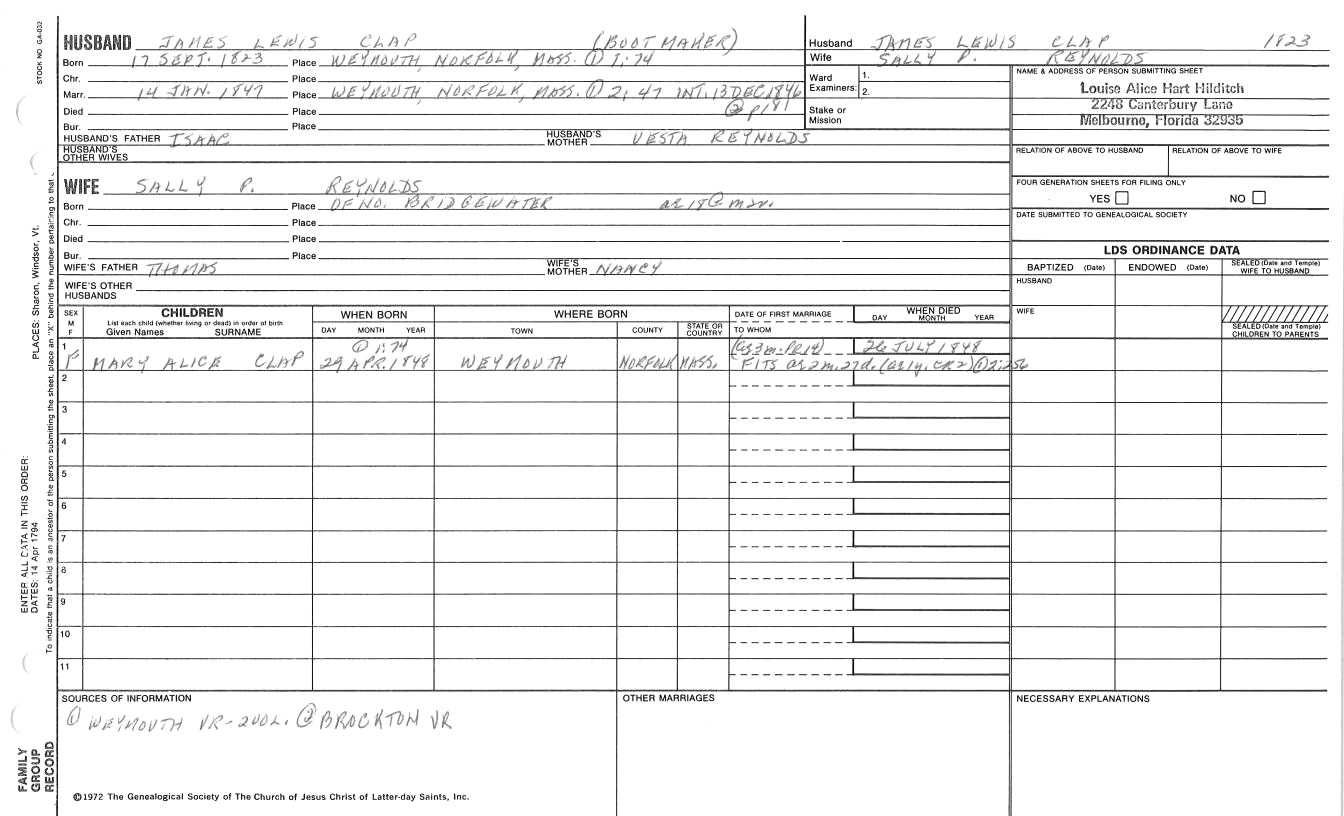 STOCK NO. GA-032
HUSBAND JAMES LEWIS CLAP (BOOT MAKER)
Born 17 SEPT. 1823 Place WEYMOUTH, NORFOLK, MASS. ① 1:74
Chr. Place
Marr. 14 JAN. 1847 Place WEYMOUTH, NORFOLK, MASS. ① 2:47 INT. 13 DEC 1846
Died Place ② p181
Bur. Place
HUSBAND'S FATHER ISAAC HUSBAND'S MOTHER VESTA REYNOLDS
HUSBAND'S OTHER WIVES
Husband JAMES LEWIS CLAP 1823
Wife SALLY P. REYNOLDS
Ward Examiners: 1.
2.
Stake or Mission
NAME & ADDRESS OF PERSON SUBMITTING SHEET
Louise Alice Hart Hilditch
2248 Canterbury Lane
Melbourne, Florida 32935
RELATION OF ABOVE TO HUSBAND RELATION OF ABOVE TO WIFE
FOUR GENERATION SHEETS FOR FILING ONLY
YES NO
DATE SUBMITTED TO GENEALOGICAL SOCIETY
WIFE SALLY P. REYNOLDS
Born Place OF NO. BRIDGEWATER ae 18 @ mar.
Chr. Place
Died Place
Bur. Place
WIFE'S FATHER THOMAS WIFE'S MOTHER NANCY
WIFE'S OTHER HUSBANDS
LDS ORDINANCE DATA
BAPTIZED (Date) ENDOWED (Date) SEALED (Date and Temple) WIFE TO HUSBAND
HUSBAND
WIFE
SEALED (Date and Temple) CHILDREN TO PARENTS
SEX M F CHILDREN WHEN BORN WHERE BORN DATE OF FIRST MARRIAGE WHEN DIED
List each child (whether living or dead) in order of birth
Given Names SURNAME DAY MONTH YEAR TOWN COUNTY STATE OR COUNTRY TO WHOM DAY MONTH YEAR
1 ① 1:74 (ae 3m. PR14) 26 JULY 1848
F MARY ALICE CLAP 29 APR. 1848 WEYMOUTH NORFOLK MASS. FITS ae 2m. 27d. (ae 1y. CR2) ① 2:256
2
3
4
5
6
7
8
9
10
11
SOURCES OF INFORMATION OTHER MARRIAGES NECESSARY EXPLANATIONS
① WEYMOUTH VR-2VOL. ② BROCKTON VR
©1972 The Genealogical Society of The Church of Jesus Christ of Latter-day Saints, Inc.
FAMILY
GROUP
RECORD
ENTER ALL DATA IN THIS ORDER:
DATES: 14 Apr 1794
PLACES: Sharon, Windsor, Vt.
To indicate that a child is an ancestor of the person submitting the sheet, place an "X" behind the number pertaining to that